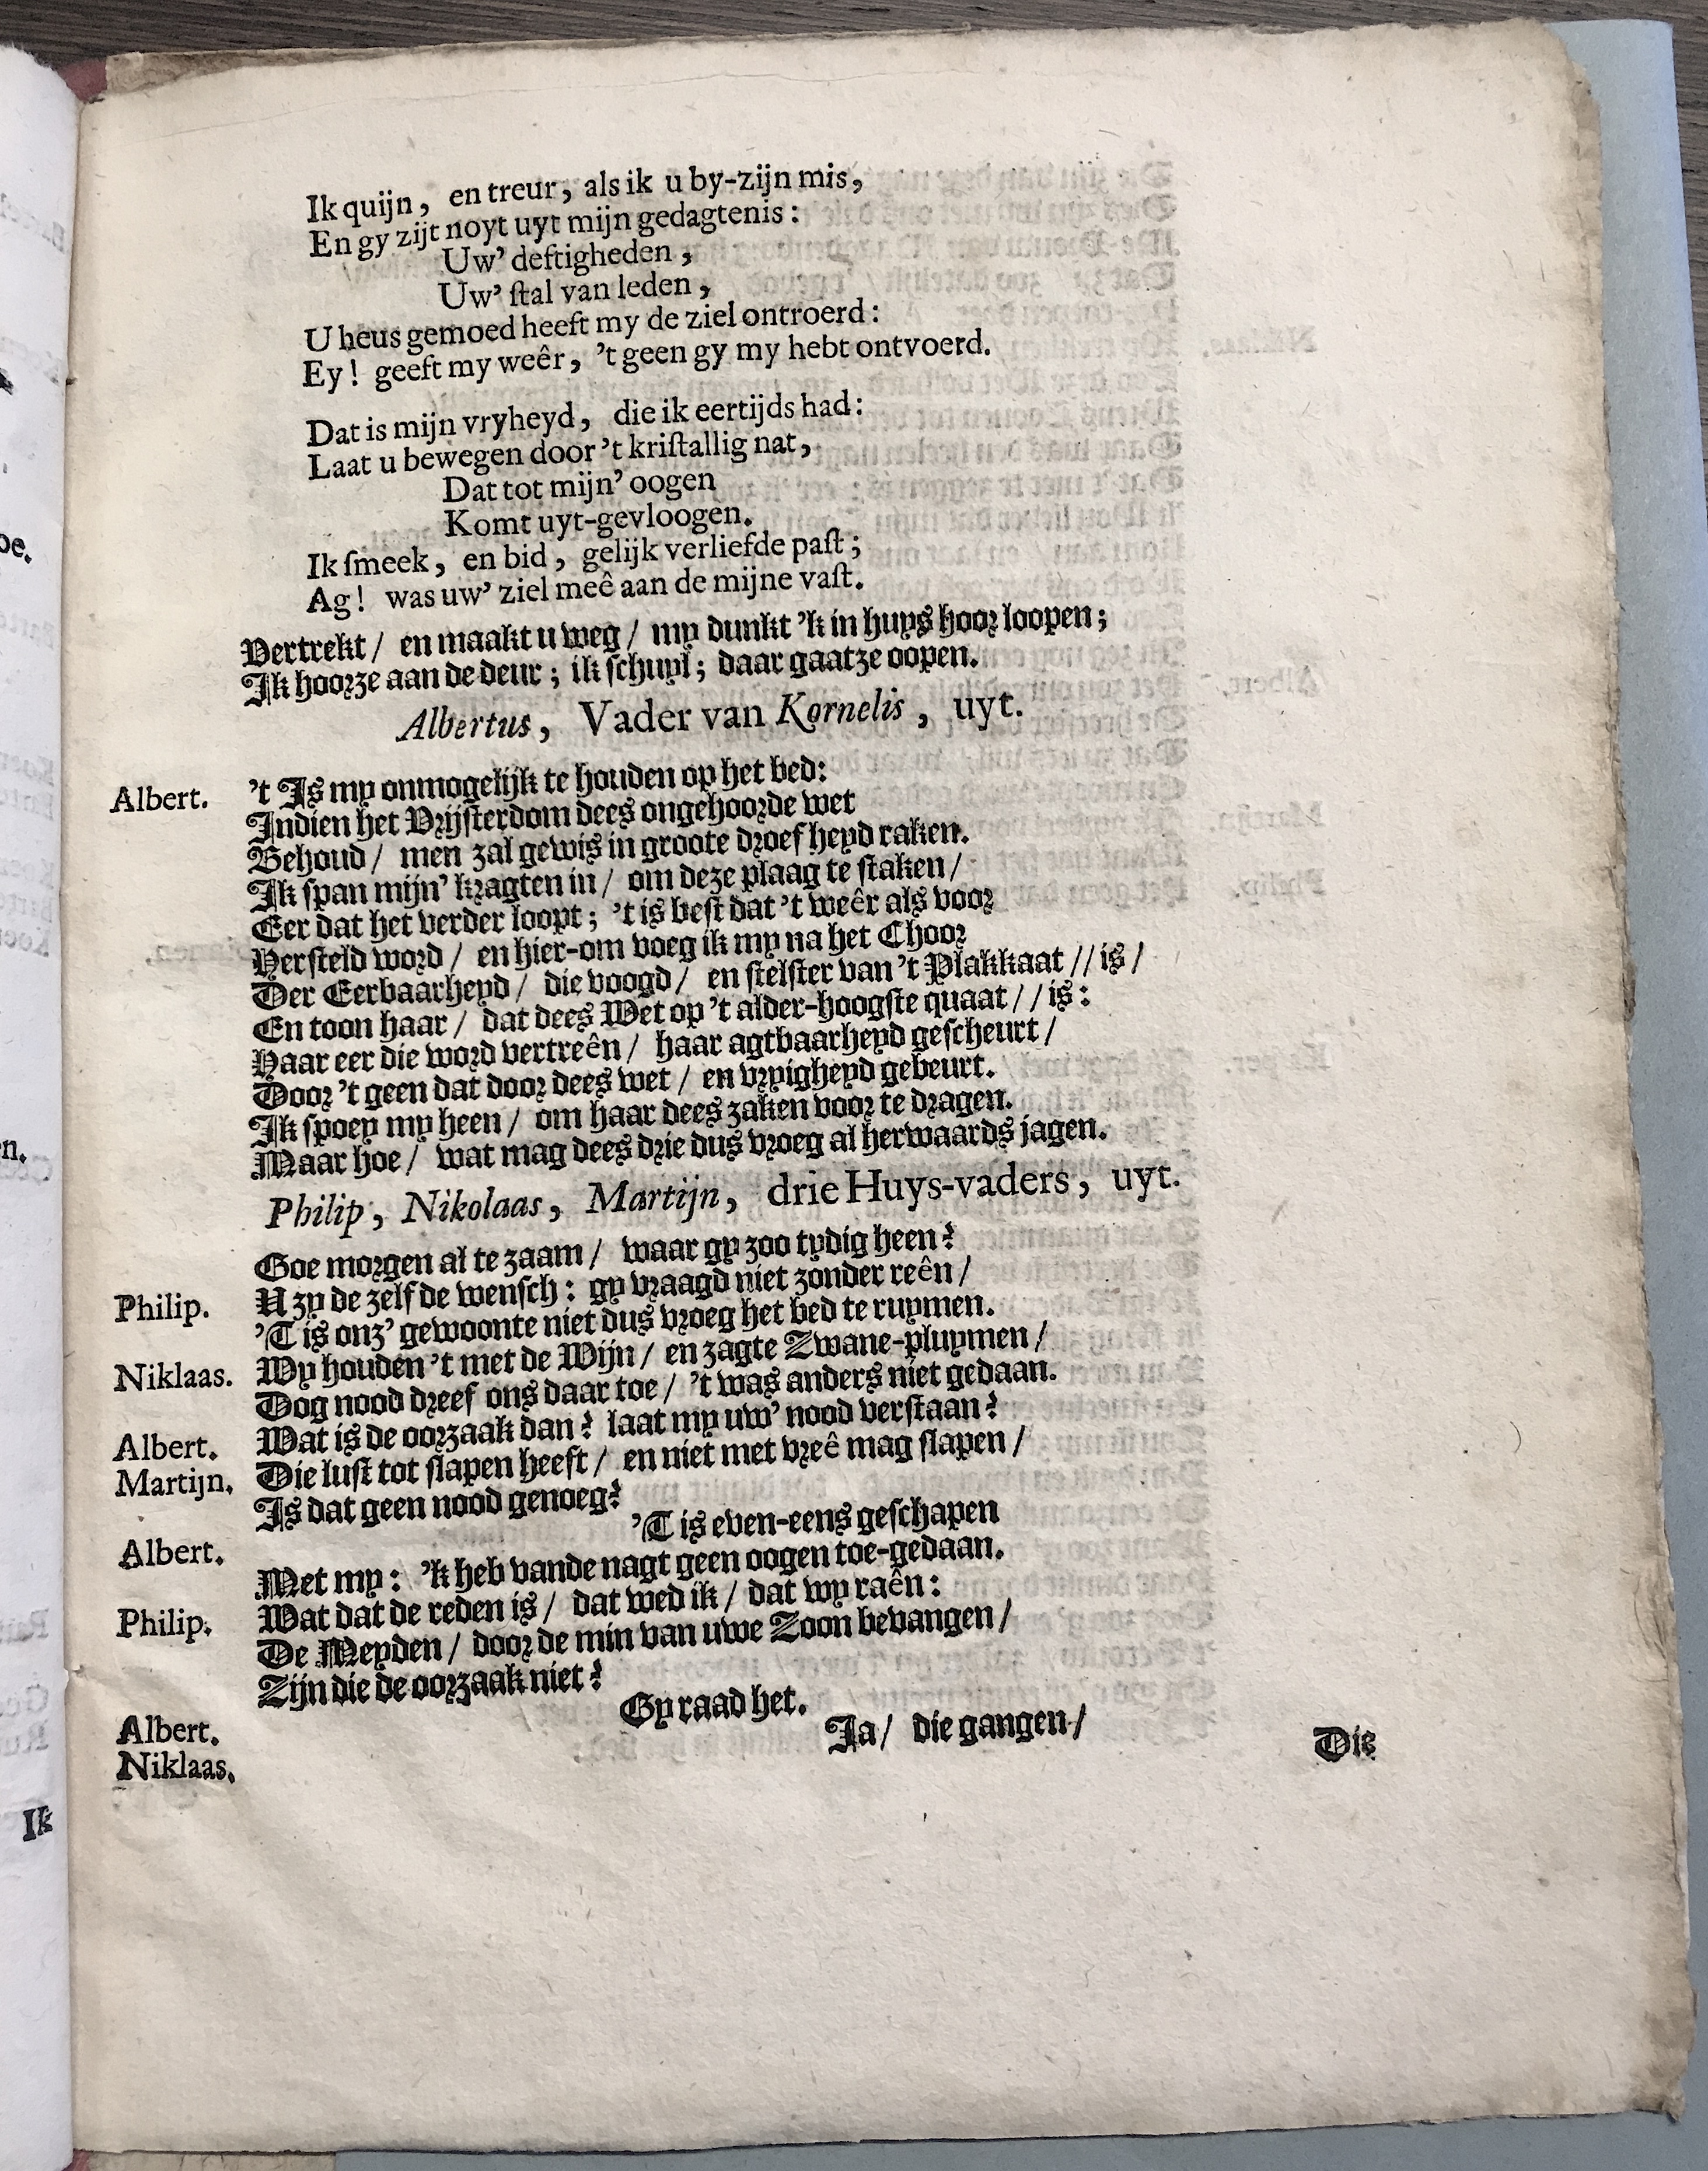 Ik quijn, en treur, als ik u by-zijn mis,
En gy zijt noyt uyt mijn gedagtenis:
Uw' deftigheden,
Uw' ſtal van leden,
U heus gemoed heeft my de ziel ontroerd:
Ey! geeft my weêr, 't geen gy my hebt ontvoerd.
Dat is mijn vryheyd, die ik eertijds had:
Laat u bewegen door 't kriſtallig nat,
Dat tot mijn' oogen
Komt uyt-gevloogen.
Ik ſmeek, en bid, gelijk verliefde paſt;
Ag! was uw' ziel meê aan de mijne vaſt.
Vertrekt / en maakt u weg / my dunkt 'k in huys hoor loopen;
Ik hoorze aan de deur; ik ſchuyl; daar gaatze oopen.
Albertus, Vader van Kornelis, uyt.
Albert. 't Is my onmogelijk te houden op het bed:
Indien het Vrijſterdom dees ongehoorde wet
Behoud / men zal gewis in groote droefheyd raken.
Ik ſpan mijn' kragten in / om deze plaag te ſtaken /
Eer dat het verder loopt; 't is beſt dat 't weêr als voor
Herſteld word / en hier-om voeg ik my na het Choor
Der Eerbaarheyd / die voogd / en ſtelſter van 't Plakkaat // is /
En toon haar / dat dees Wet op 't alder-hoogſte quaat // is:
Haar eer die word vertreên / haar agtbaarheyd geſcheurt /
Door 't geen dat door dees wet / en vryigheyd gebeurt.
Ik ſpoey my heen / om haar dees zaken voor te dragen.
Maar hoe / wat mag dees drie dus vroeg al herwaards jagen.
Philip, Nikolaas, Martijn, drie Huys-vaders, uyt.
Goe morgen al te zaam / waar gy zoo tydig heen?
Philip. U zy de zelfde wenſch: gy vraagd niet zonder reên /
'T is onz' gewoonte niet dus vroeg het bed te ruymen.
Niklaas. Wy houden 't met de Wijn / en zagte Zwane-pluymen /
Dog nood dreef ons daar toe / 't was anders niet gedaan.
Albert. Wat is de oorzaak dan? laat my uw' nood verſtaan?
Martijn. Die luſt tot ſlapen heeft / en niet met vreê mag ſlapen /
Is dat geen nood genoeg?
Albert. 'T is even-eens geſchapen
Met my: 'k heb vande nagt geen oogen toe-gedaan.
Philip. Wat dat de reden is / dat wed ik / dat wy raên:
De Meyden / door de min van uwe Zoon bevangen /
Zijn die de oorzaak niet?
Albert. Gy raad het.
Niklaas. Ja / die gangen /
Die
Ik